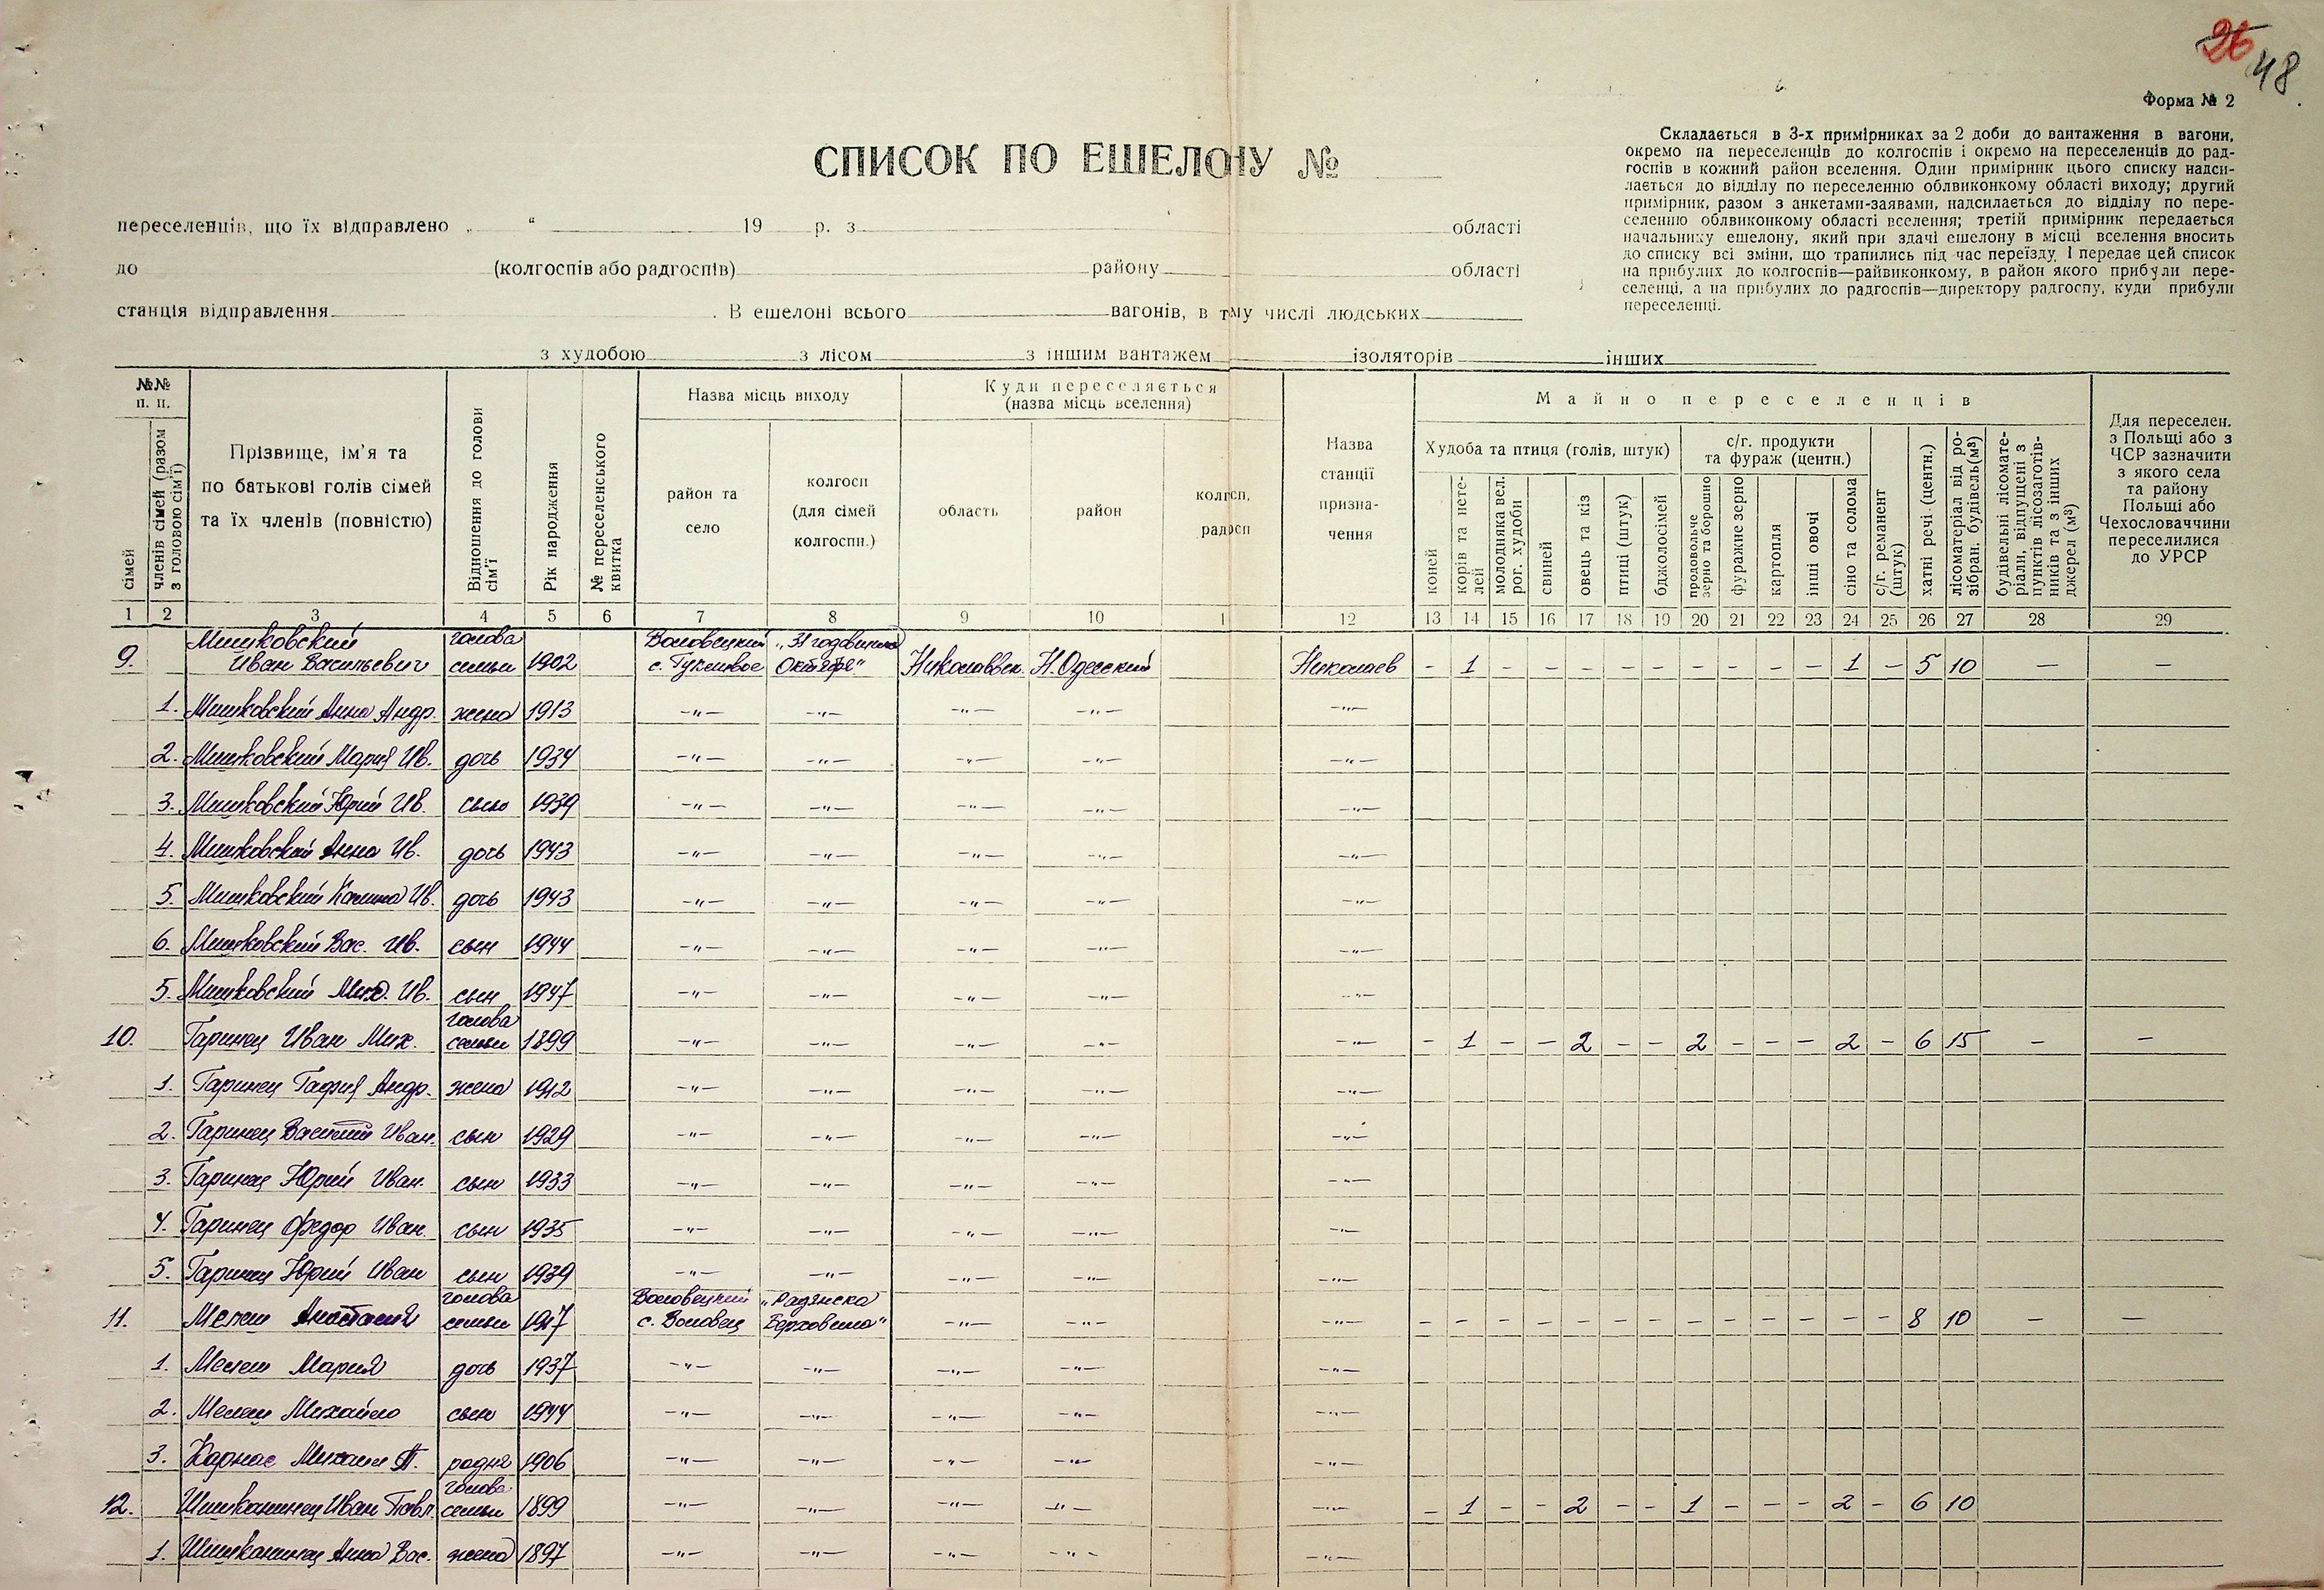 26
48
Форма № 2
СПИСОК ПО ЕШЕЛОНУ №
Складається в 3-х примірниках за 2 доби до вантаження в вагони,
окремо на переселенців до колгоспів і окремо на переселенців до рад-
госпів в кожний район вселення. Один примірник цього списку надси-
лається до відділу по переселенню облвиконкому області виходу; другий
примірник, разом з анкетами-заявами, надсилається до відділу по пере-
селенню облвиконкому області вселення; третій примірник передається
начальнику ешелону, який при здачі ешелону в місці вселення вносить
до списку всі зміни, що трапились під час переїзду, і передає цей список
на прибулих до колгоспів—райвиконкому, в район якого прибули пере-
селенці, а на прибулих до радгоспів—директору радгоспу, куди прибули
переселенці.
переселенців, що їх відправлено „ “ 19 р. з області
до (колгоспів або радгоспів) району області
станція відправлення . В ешелоні всього вагонів, в тму числі людських
з худобою з лісом з іншим вантажем ізоляторів інших
№№ п. п.
сімей
членів сімей (разом з головою сім'ї)
Прізвище, ім'я та
по батькові голів сімей
та їх членів (повністю)
Відношення до голови сім'ї
Рік народження
№ переселенського квитка
Назва місць виходу
район та
село
колгосп
(для сімей
колгоспн.)
Куди переселяється
(назва місць вселення)
область
район
колгсп,
радосп
Назва
станції
призна-
чення
Майно переселенців
Худоба та птиця (голів, штук)
коней
корів та нете-
лей
молодняка вел.
рог. худоби
свиней
овець та кіз
птиці (штук)
бджолосімей
с/г. продукти
та фураж (центн.)
продовольче
зерно та борошно
фуражне зерно
картопля
інші овочі
сіно та солома
с/г. реманент
(штук)
хатні речі (центн.)
лісоматеріал від ро-
зібран. будівель (м³)
будівельні лісомате-
ріали, відпущені з
пунктів лісозаготів-
ників та з інших
джерел (м³)
Для переселен.
з Польщі або з
ЧСР зазначити
з якого села
та району
Польщі або
Чехословаччини
переселилися
до УРСР
1 2 3 4 5 6 7 8 9 10 1 12 13 14 15 16 17 18 19 20 21 22 23 24 25 26 27 28 29
Мишковский голова Воловецкий „31 годовщина
9. Иван Васильевич семьи 1902 с. Гукливое Октября“ Николаевск. Н. Одесский Николаев - 1 - - - - - - - - - 1 - 5 10 — —
1. Мишковский Анна Андр. жена 1913 —"— —"— —"— —"— —"—
2. Мишковский Мария Ив. дочь 1934 —"— —"— —"— —"— —"—
3. Мишковский Юрий Ив. сын 1939 —"— —"— —"— —"— —"—
4. Мишковский Анна Ив. дочь 1943 —"— —"— —"— —"— —"—
5. Мишковский Калина Ив. дочь 1943 —"— —"— —"— —"— —"—
6. Мишковский Вас. Ив. сын 1944 —"— —"— —"— —"— —"—
5. Мишковский Мих. Ив. сын 1947 —"— —"— —"— —"— —"—
голова
10. Гаринец Иван Мих. семьи 1899 —"— —"— —"— —"— —"— - 1 - - 2 - - 2 - - - 2 - 6 15 — —
1. Гаринец Гафия Андр. жена 1912 —"— —"— —"— —"— —"—
2. Гаринец Василий Иван. сын 1929 —"— —"— —"— —"— —"—
3. Гаринец Юрий Иван. сын 1933 —"— —"— —"— —"— —"—
4. Гаринец Федор Иван. сын 1935 —"— —"— —"— —"— —"—
5. Гаринец Юрий Иван сын 1939 —"— —"— —"— —"— —"—
голова Воловецкий „Радянска
11. Мелеш Анастасия семьи 1917 с. Воловец Верховина“ —"— —"— —"— - - - - - - - - - - - - - 8 10 — —
1. Мелеш Мария дочь 1937 —"— —"— —"— —"— —"—
2. Мелеш Михайло сын 1944 —"— —"— —"— —"— —"—
3. Михаил П. родня 1906 —"— —"— —"— —"— —"—
голова
12. Шишканинец Иван Павл. семьи 1899 —"— —"— —"— —"— —"— - 1 - - 2 - - 1 - - - 2 - 6 10
1. Шишканинец Анна Вас. жена 1897 —"— —"— —"— —"— —"—